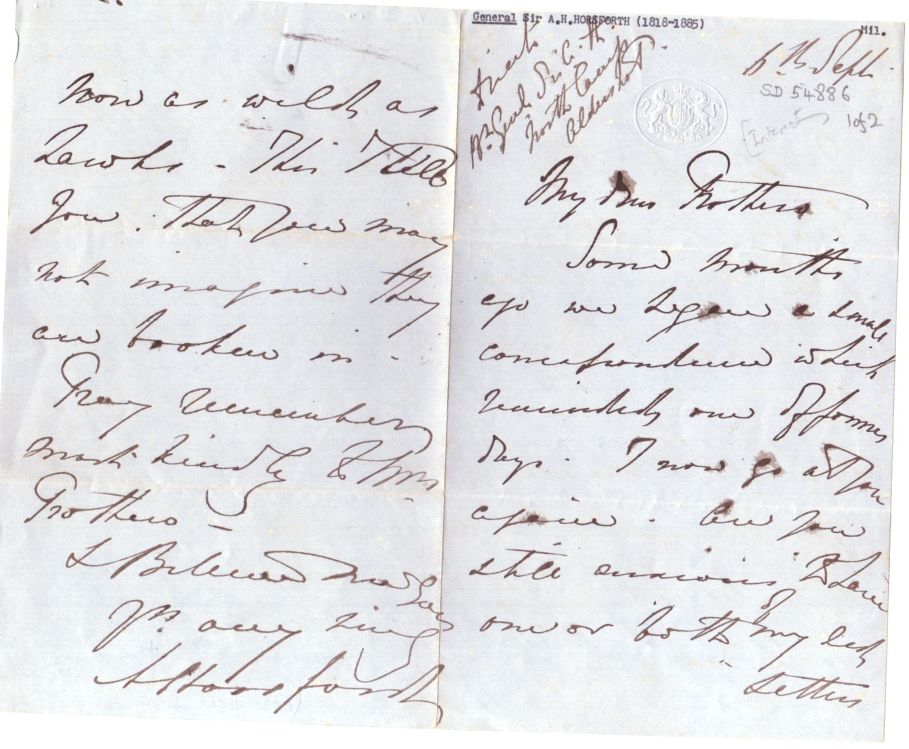 General Sir A.H.HORSFORTH (1818-1885)
Mil.
6th Sept
SD 54886
1 of 2
North Camp
Aldershot
My dear Prothero
Some months
ago we began a small
correspondence which
reminded one of former
days. I now go at you
again. Are you
still anxious to have
one or both of my
Setters
now as wild as
Hawks - This I tell
you. That you may
not imagine they
are broken in -
Pray remember
most kindly to Mrs
Prothero -
& Believe me
Yrs very sincy
AHorsford